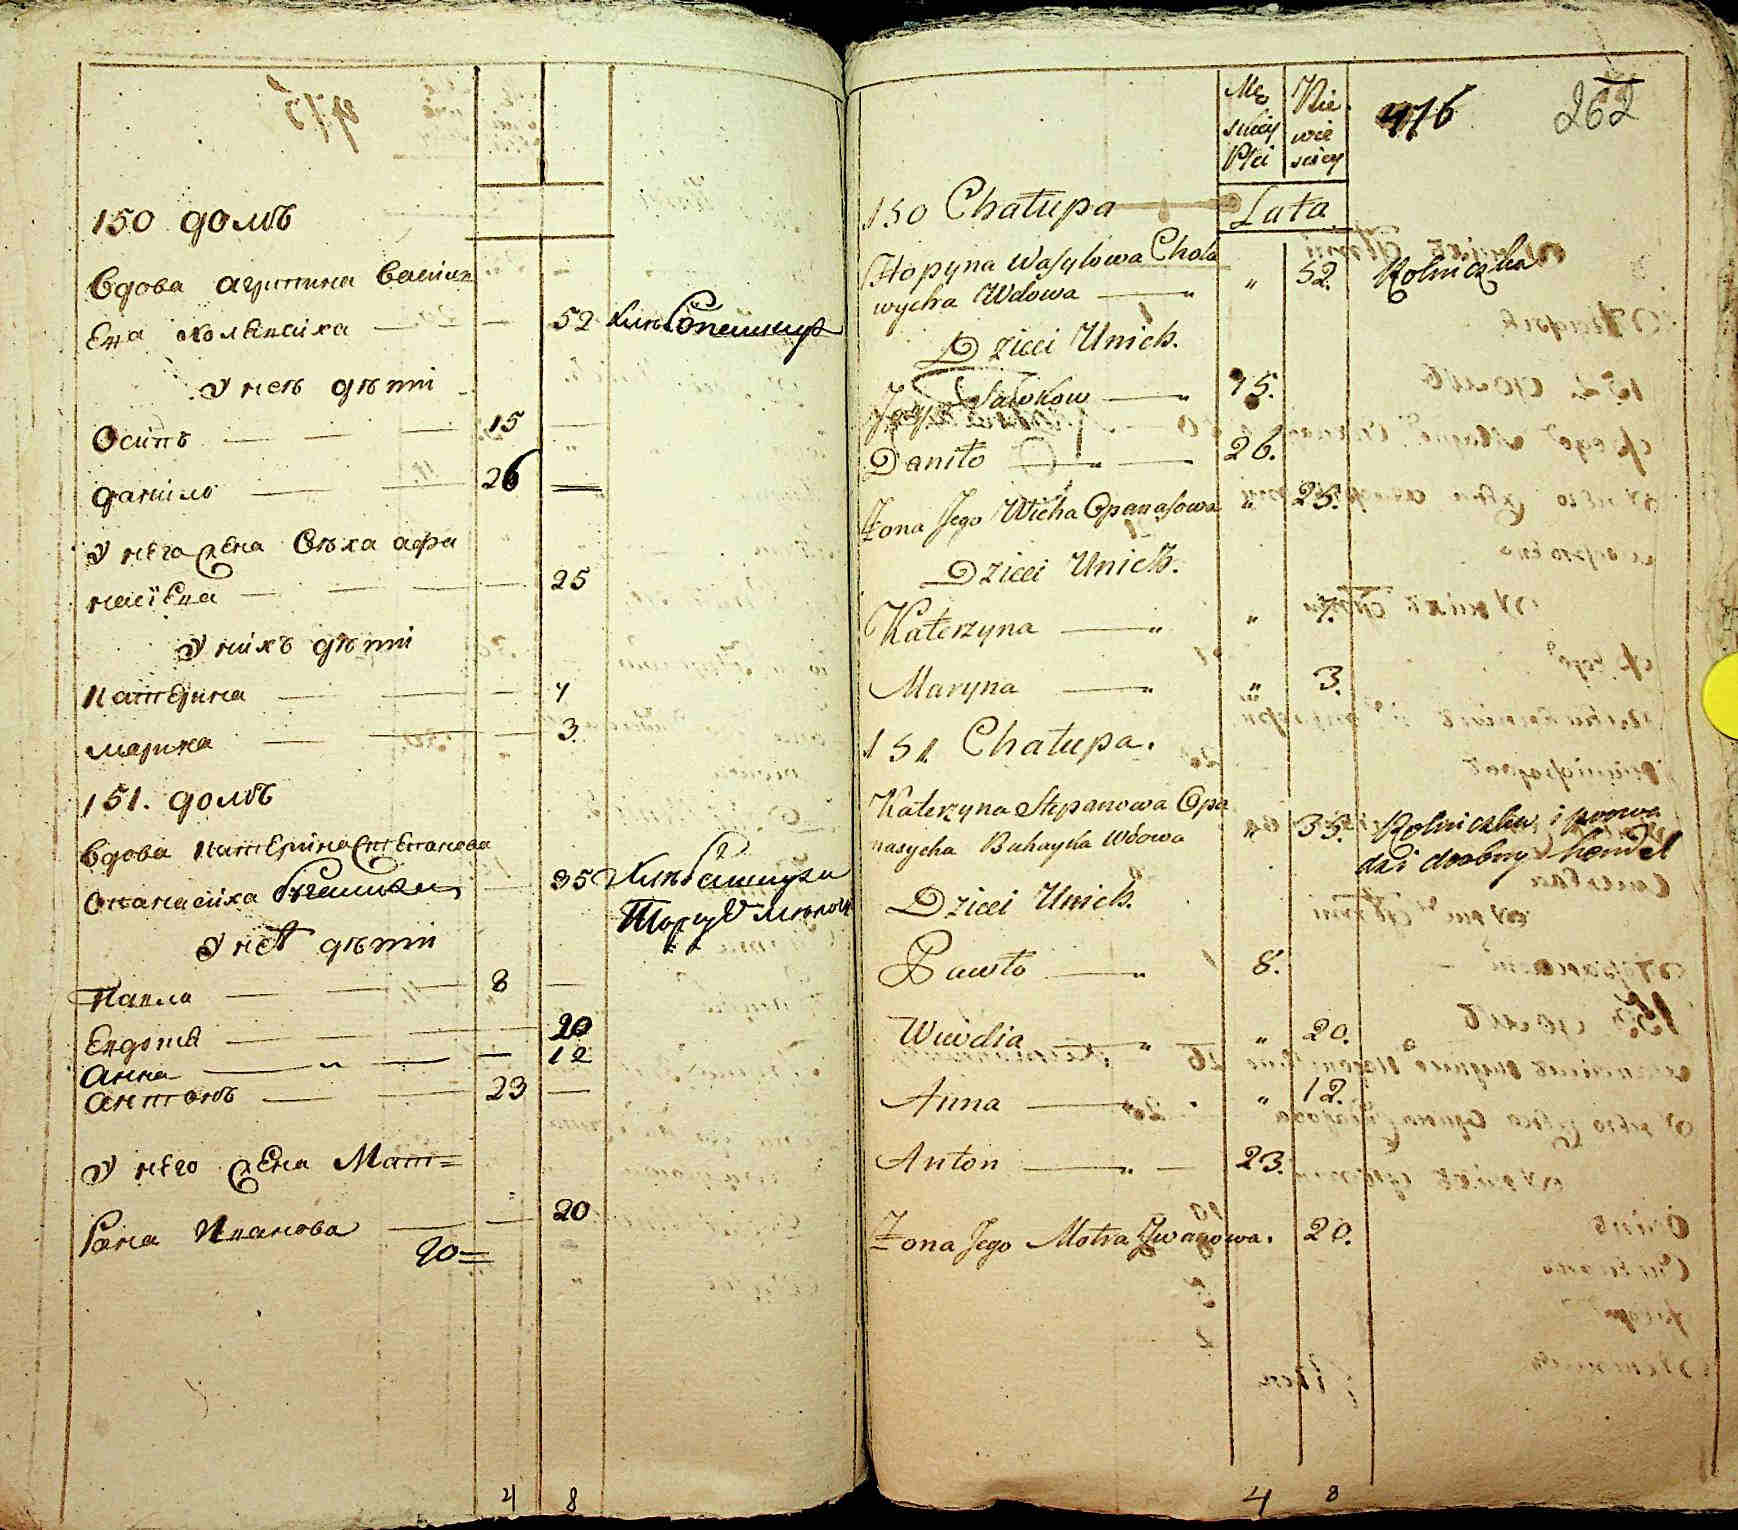 150 домъ
Вдова Агрипина Васил
Ева
52
У неѣ дѣти
Осипъ 15
Данило 26
У него жена Вѣха Афа
насіева 25
У нихъ дѣти
Катерина 7
Марина 3
151. домъ
Вдова Катерина Степанова
Опанасиха 35
У неѣ дѣти
Павло 8
Евдокія 20
Анна 12
Антонъ 23
У него жена Мат=
рона Иванова 20
20=
4 8
Mę Nie
skiey wie
Płci sciey
476
262
150 Chałupa Lata
Hopyna Wasylowa Chola
wycha Wdowa " 52. Rolniczka
Dzieci Unich.
15.
Daniło 26.
Żona Jego Wicha Opanasowa " 25.
Dzieci Unich.
Katerzyna " 7.
Maryna " 3.
151 Chałupa.
Katerzyna Stepanowa Opa
nasycha Wdowa " 35. Rolniczka i prowa
dzi drobny handel
Dzieci Unich.
Pawło 8.
Wiwdia " 20.
Anna " 12.
Anton 23.
Żona Jego Motra Iwanowa. 20.
4 8